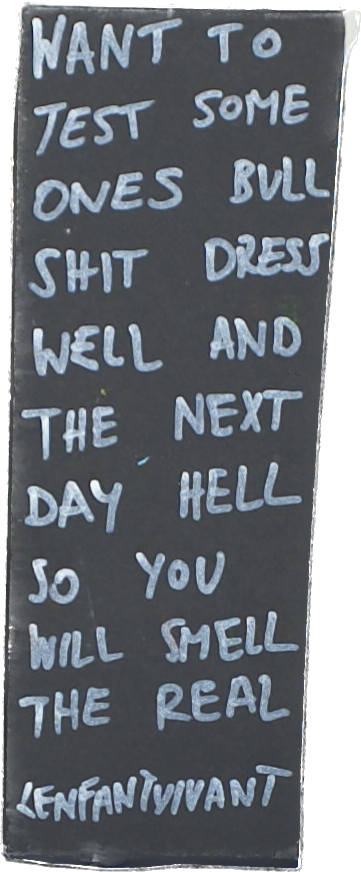 WANT TO
TEST SOME
ONES BULL
SHIT DRESS
WELL AND
THE NEXT
DAY HELL
SO YOU
WILL SMELL
THE REAL
LENFANTVIVANT